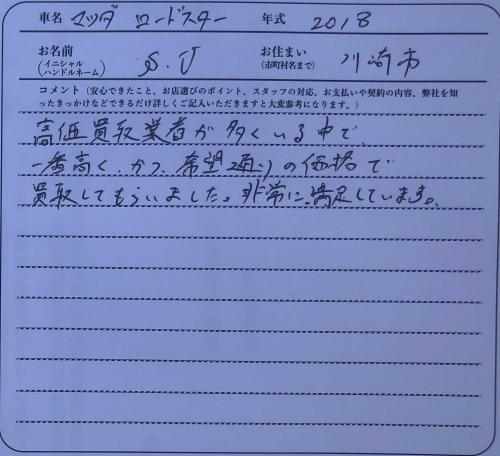 車名 マツダ ロードスター 年式 2018
お名前 (イニシャル ハンドルネーム) S.J お住まい (市町村名まで) 川崎市
コメント（安心できたこと、お店選びのポイント、スタッフの対応、お支払いや契約の内容、弊社を知
ったきっかけなどできるだけ詳しくご記入いただきますと大変参考になります。）
高価買取業者が多くいる中で
一番高く、かつ、希望通りの価格で
買取してもらいました。非常に満足しています。